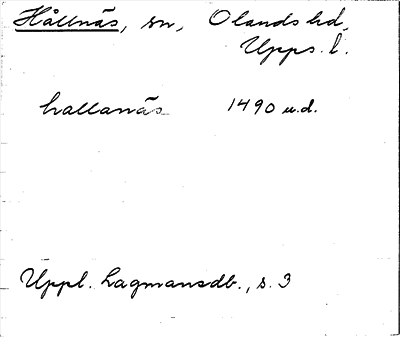 Hållnäs, sn, Olands hd,
Upps. l.
hallanäs 1490 u.d.
Uppl. Lagmansdb., s. 3